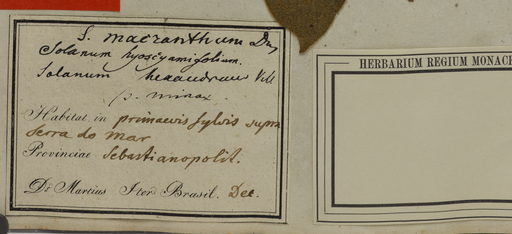 S. macranthum Dun,
Solanum hyoscyamifolium.
Solanum hexandrum Vell
β. minax.
Habitat in primaevis sylvis supra
Serra do Mar
Provinciae Sebastianopolit.
Dr Martius Iter Brasil. Dec.
HERBARIUM REGIUM MONAC